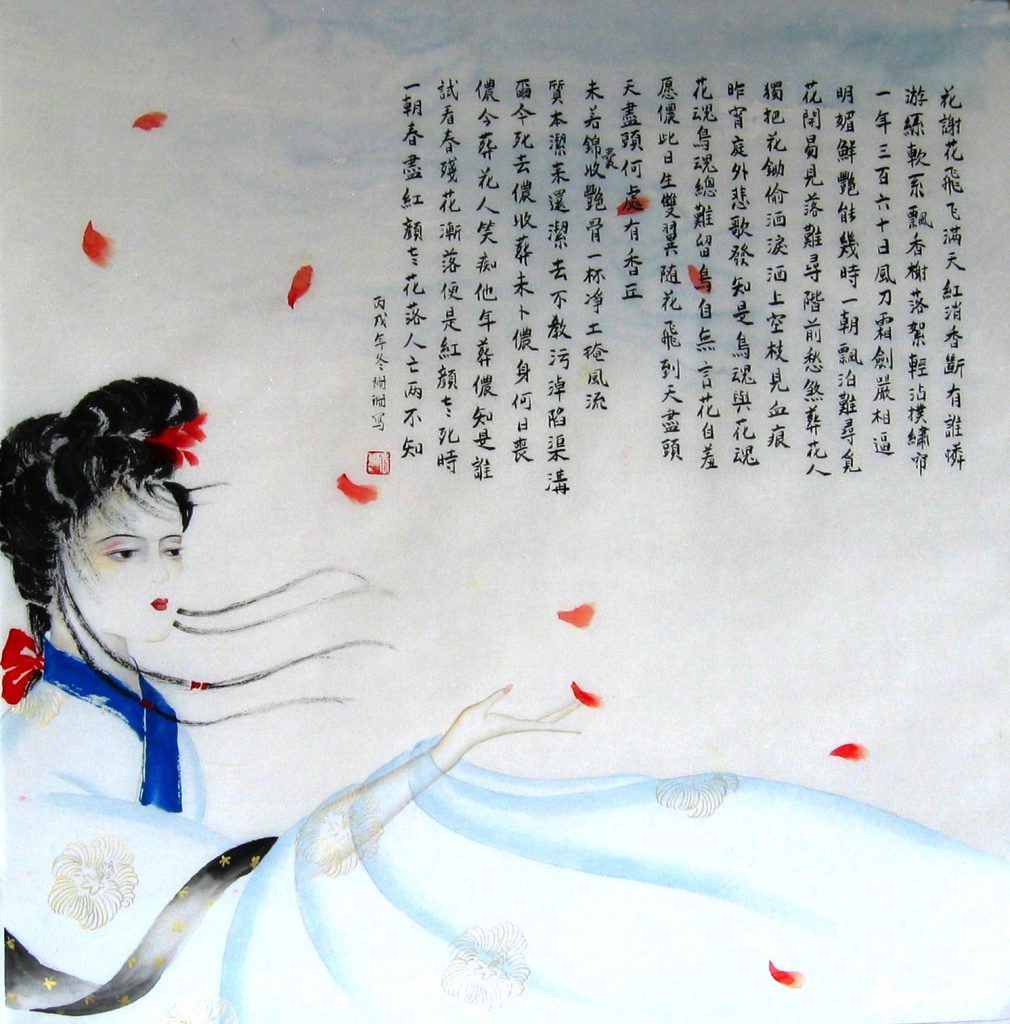 花謝花飛飞满天紅消香斷有誰憐
游絲軟系飄香榭落絮輕沾撲繡帘
一年三百六十日風刀霜劍嚴相逼
明媚鮮艷能幾時一朝飄泊難尋覓
花開易見落難尋階前愁煞葬花人
獨把花鋤偷洒淚洒上空枝見血痕
昨宵庭外悲歌發知是鳥魂與花魂
花魂鳥魂總難留鳥自無言花自羞
愿儂此日生雙翼随花飛到天盡頭
天盡頭何處有香丘
未若錦囊收艷骨一杯净土掩風流
質本潔来還潔去不教污淖陷渠溝
爾今死去儂收葬未卜儂身何日喪
儂今葬花人笑痴他年葬儂知是誰
試看春殘花漸落便是紅顏老死時
一朝春盡紅顏老花落人亡兩不知
丙戌年冬珊珊写